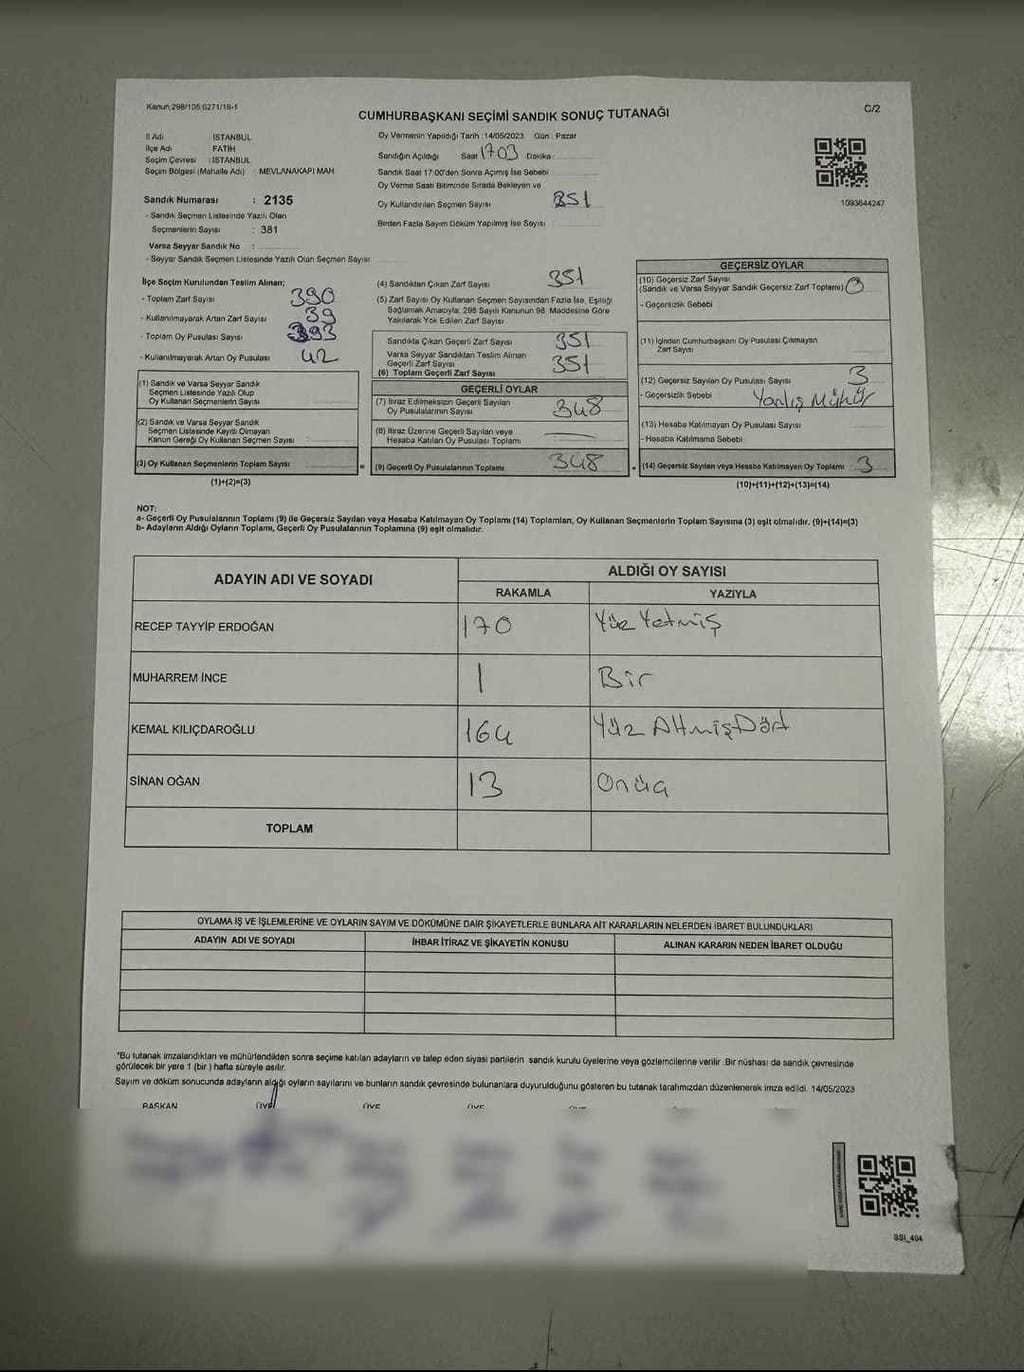 Kanun,298/105 6271/18-1
C/2
CUMHURBAŞKANI SEÇİMİ SANDIK SONUÇ TUTANAĞI
İl Adı İSTANBUL
İlçe Adı FATİH
Seçim Çevresi : İSTANBUL
Seçim Bölgesi (Mahalle Adı) : MEVLANAKAPI MAH.
Sandık Numarası : 2135
- Sandık Seçmen Listesinde Yazılı Olan
Seçmenlerin Sayısı : 381
Varsa Seyyar Sandık No :
- Seyyar Sandık Seçmen Listesinde Yazılı Olan Seçmen Sayısı:
Oy Vermenin Yapıldığı Tarih : 14/05/2023 Gün : Pazar
Sandığın Açıldığı Saat 1703 Dakika:
Sandık Saat 17:00'den Sonra Açımış İse Sebebi
Oy Verme Saati Bitiminde Sırada Bekleyen ve
Oy Kullandırılan Seçmen Sayısı 351
Birden Fazla Sayım Döküm Yapılmış İse Sayısı
1093644247
İlçe Seçim Kurulundan Teslim Alınan;
- Toplam Zarf Sayısı 390
- Kullanılmayarak Artan Zarf Sayısı 39
- Toplam Oy Pusulası Sayısı 393
- Kullanılmayarak Artan Oy Pusulası 42
(1) Sandık ve Varsa Seyyar Sandık
Seçmen Listesinde Yazılı Olup
Oy Kullanan Seçmenlerin Sayısı
(2) Sandık ve Varsa Seyyar Sandık
Seçmen Listesinde Kaydı Olmayan
Kanun Gereği Oy Kullanan Seçmen Sayısı
(3) Oy Kullanan Seçmenlerin Toplam Sayısı
(1)+(2)=(3)
(4) Sandıktan Çıkan Zarf Sayısı 351
(5) Zarf Sayısı Oy Kullanan Seçmen Sayısından Fazla İse, Eşitliği
Sağlamak Amacıyla: 298 Sayılı Kanunun 98. Maddesine Göre
Yakılarak Yok Edilen Zarf Sayısı
Sandıkta Çıkan Geçerli Zarf Sayısı 351
Varsa Seyyar Sandıktan Teslim Alınan
Geçerli Zarf Sayısı
(6) Toplam Geçerli Zarf Sayısı 351
GEÇERLİ OYLAR
(7) İtiraz Edilmeksizin Geçerli Sayılan
Oy Pusulalarının Sayısı 348
(8) İtiraz Üzerine Geçerli Sayılan veya
Hesaba Katılan Oy Pusulası Toplamı —
(9) Geçerli Oy Pusulalarının Toplamı 348
GEÇERSİZ OYLAR
(10) Geçersiz Zarf Sayısı
(Sandık ve Varsa Seyyar Sandık Geçersiz Zarf Toplamı)
- Geçersizlik Sebebi
(11) İçinden Cumhurbaşkanı Oy Pusulası Çıkmayan
Zarf Sayısı
(12) Geçersiz Sayılan Oy Pusulası Sayısı 3
- Geçersizlik Sebebi Yanlış Mühür
(13) Hesaba Katılmayan Oy Pusulası Sayısı
- Hesaba Katılmama Sebebi
(14) Geçersiz Sayılan veya Hesaba Katılmayan Oy Toplamı : 3
(10)+(11)+(12)+(13)=(14)
NOT:
a- Geçerli Oy Pusulalarının Toplamı (9) ile Geçersiz Sayılan veya Hesaba Katılmayan Oy Toplamı (14) Toplamları, Oy Kullanan Seçmenlerin Toplam Sayısına (3) eşit olmalıdır. (9)+(14)=(3)
b- Adayların Aldığı Oyların Toplamı, Geçerli Oy Pusulalarının Toplamına (9) eşit olmalıdır.
ADAYIN ADI VE SOYADI
ALDIĞI OY SAYISI
RAKAMLA YAZIYLA
RECEP TAYYİP ERDOĞAN 170 Yüz Yetmiş
MUHARREM İNCE 1 Bir
KEMAL KILIÇDAROĞLU 164 Yüz AltmışDört
SİNAN OĞAN 13 Onüç
TOPLAM
OYLAMA İŞ VE İŞLEMLERİNE VE OYLARIN SAYIM VE DÖKÜMÜNE DAİR ŞİKAYETLERLE BUNLARA AİT KARARLARIN NELERDEN İBARET BULUNDUKLARI
ADAYIN ADI VE SOYADI İHBAR İTİRAZ VE ŞİKAYETİN KONUSU ALINAN KARARIN NEDEN İBARET OLDUĞU
*Bu tutanak imzalandıktan ve mühürlendikten sonra seçime katılan adayların ve talep eden siyasi partilerin sandık kurulu üyelerine veya gözlemcilerine verilir. Bir nüshası da sandık çevresinde
görülecek bir yere 1 (bir ) hafta süreyle asılır.
Sayım ve döküm sonucunda adayların aldığı oyların sayılarını ve bunların sandık çevresinde bulunanlara duyurulduğunu gösteren bu tutanak tarafımızdan düzenlenerek imza edildi. 14/05/2023
BAŞKAN ÜYE ÜYE ÜYE
SSI_404